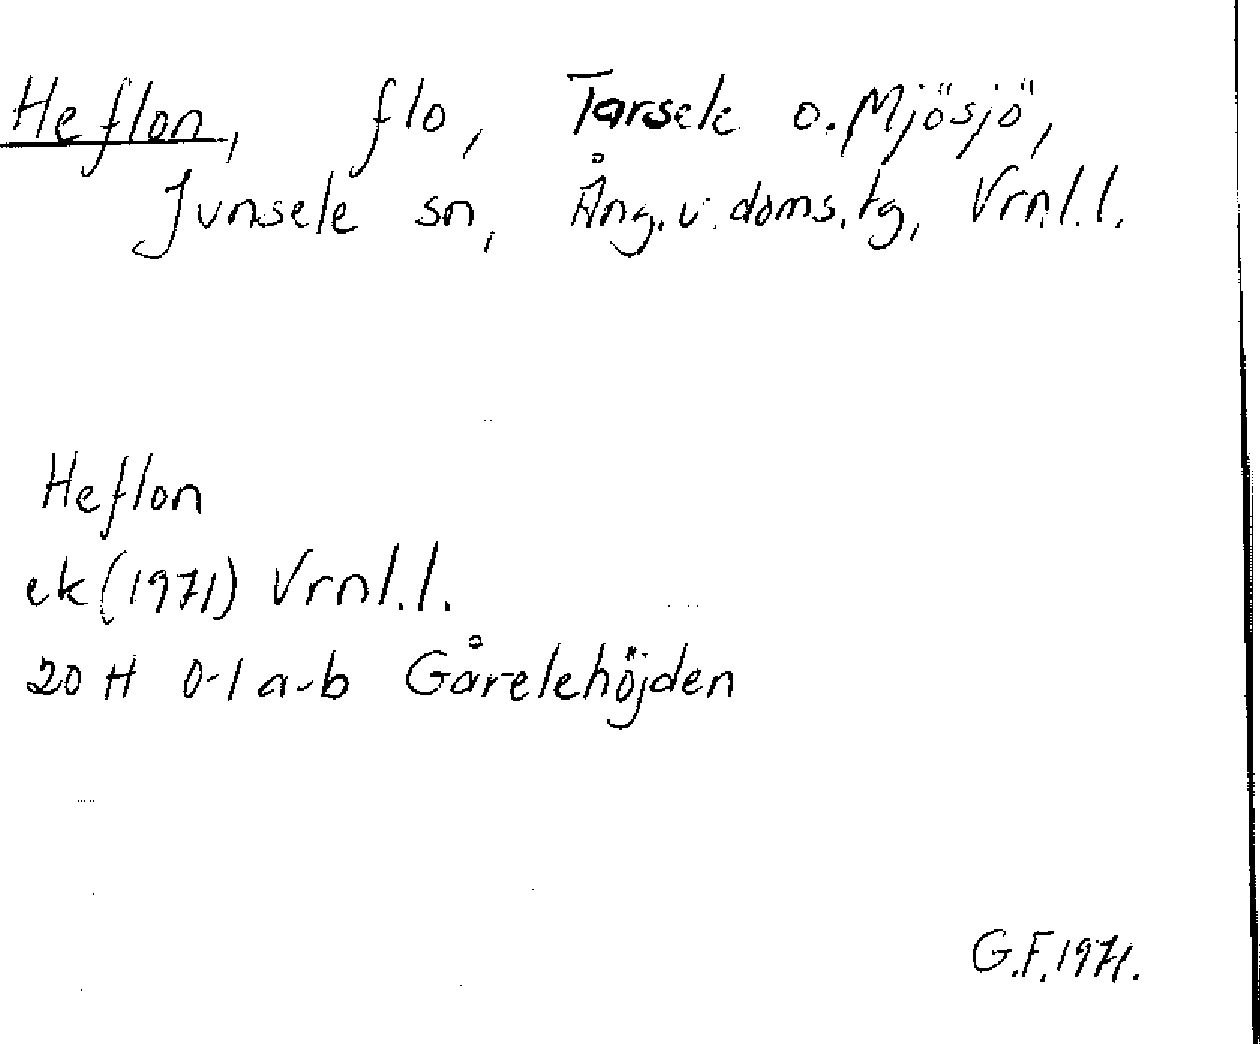 Heflon, flo, Tarsele o. Mjösjö,
Junsele sn, Ång.v.doms.tg, Vrnl.l.
Heflon
ek (1971) Vrnl.l.
20 H 0-1 a-b Gårelehöjden
G.F. 1971.